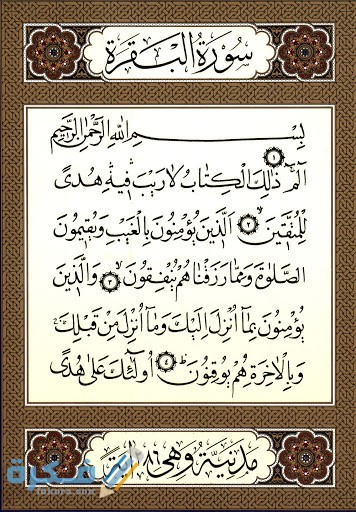 سُورَةُ الْبَقَرَةِ
بِسْمِ اللّٰهِ الرَّحْمٰنِ الرَّحِيمِ
الٓمٓ ۚ ﴿١﴾ ذٰلِكَ الْكِتَابُ لَا رَيْبَ ۛ فِيهِ ۛ هُدًى
لِلْمُتَّقِينَ ۙ ﴿٢﴾ اَلَّذِينَ يُؤْمِنُونَ بِالْغَيْبِ وَيُقِيمُونَ
الصَّلٰوةَ وَمِمَّا رَزَقْنَاهُمْ يُنْفِقُونَ ۙ ﴿٣﴾ وَالَّذِينَ
يُؤْمِنُونَ بِمَٓا اُنْزِلَ اِلَيْكَ وَمَٓا اُنْزِلَ مِنْ قَبْلِكَ ۚ
وَبِالْاٰخِرَةِ هُمْ يُوقِنُونَ ۜ ﴿٤﴾ اُو۬لٰٓئِكَ عَلٰى هُدًى
مَدَنِيَّةٌ وَهِيَ ٢٨٦
فكرة
fekera.com